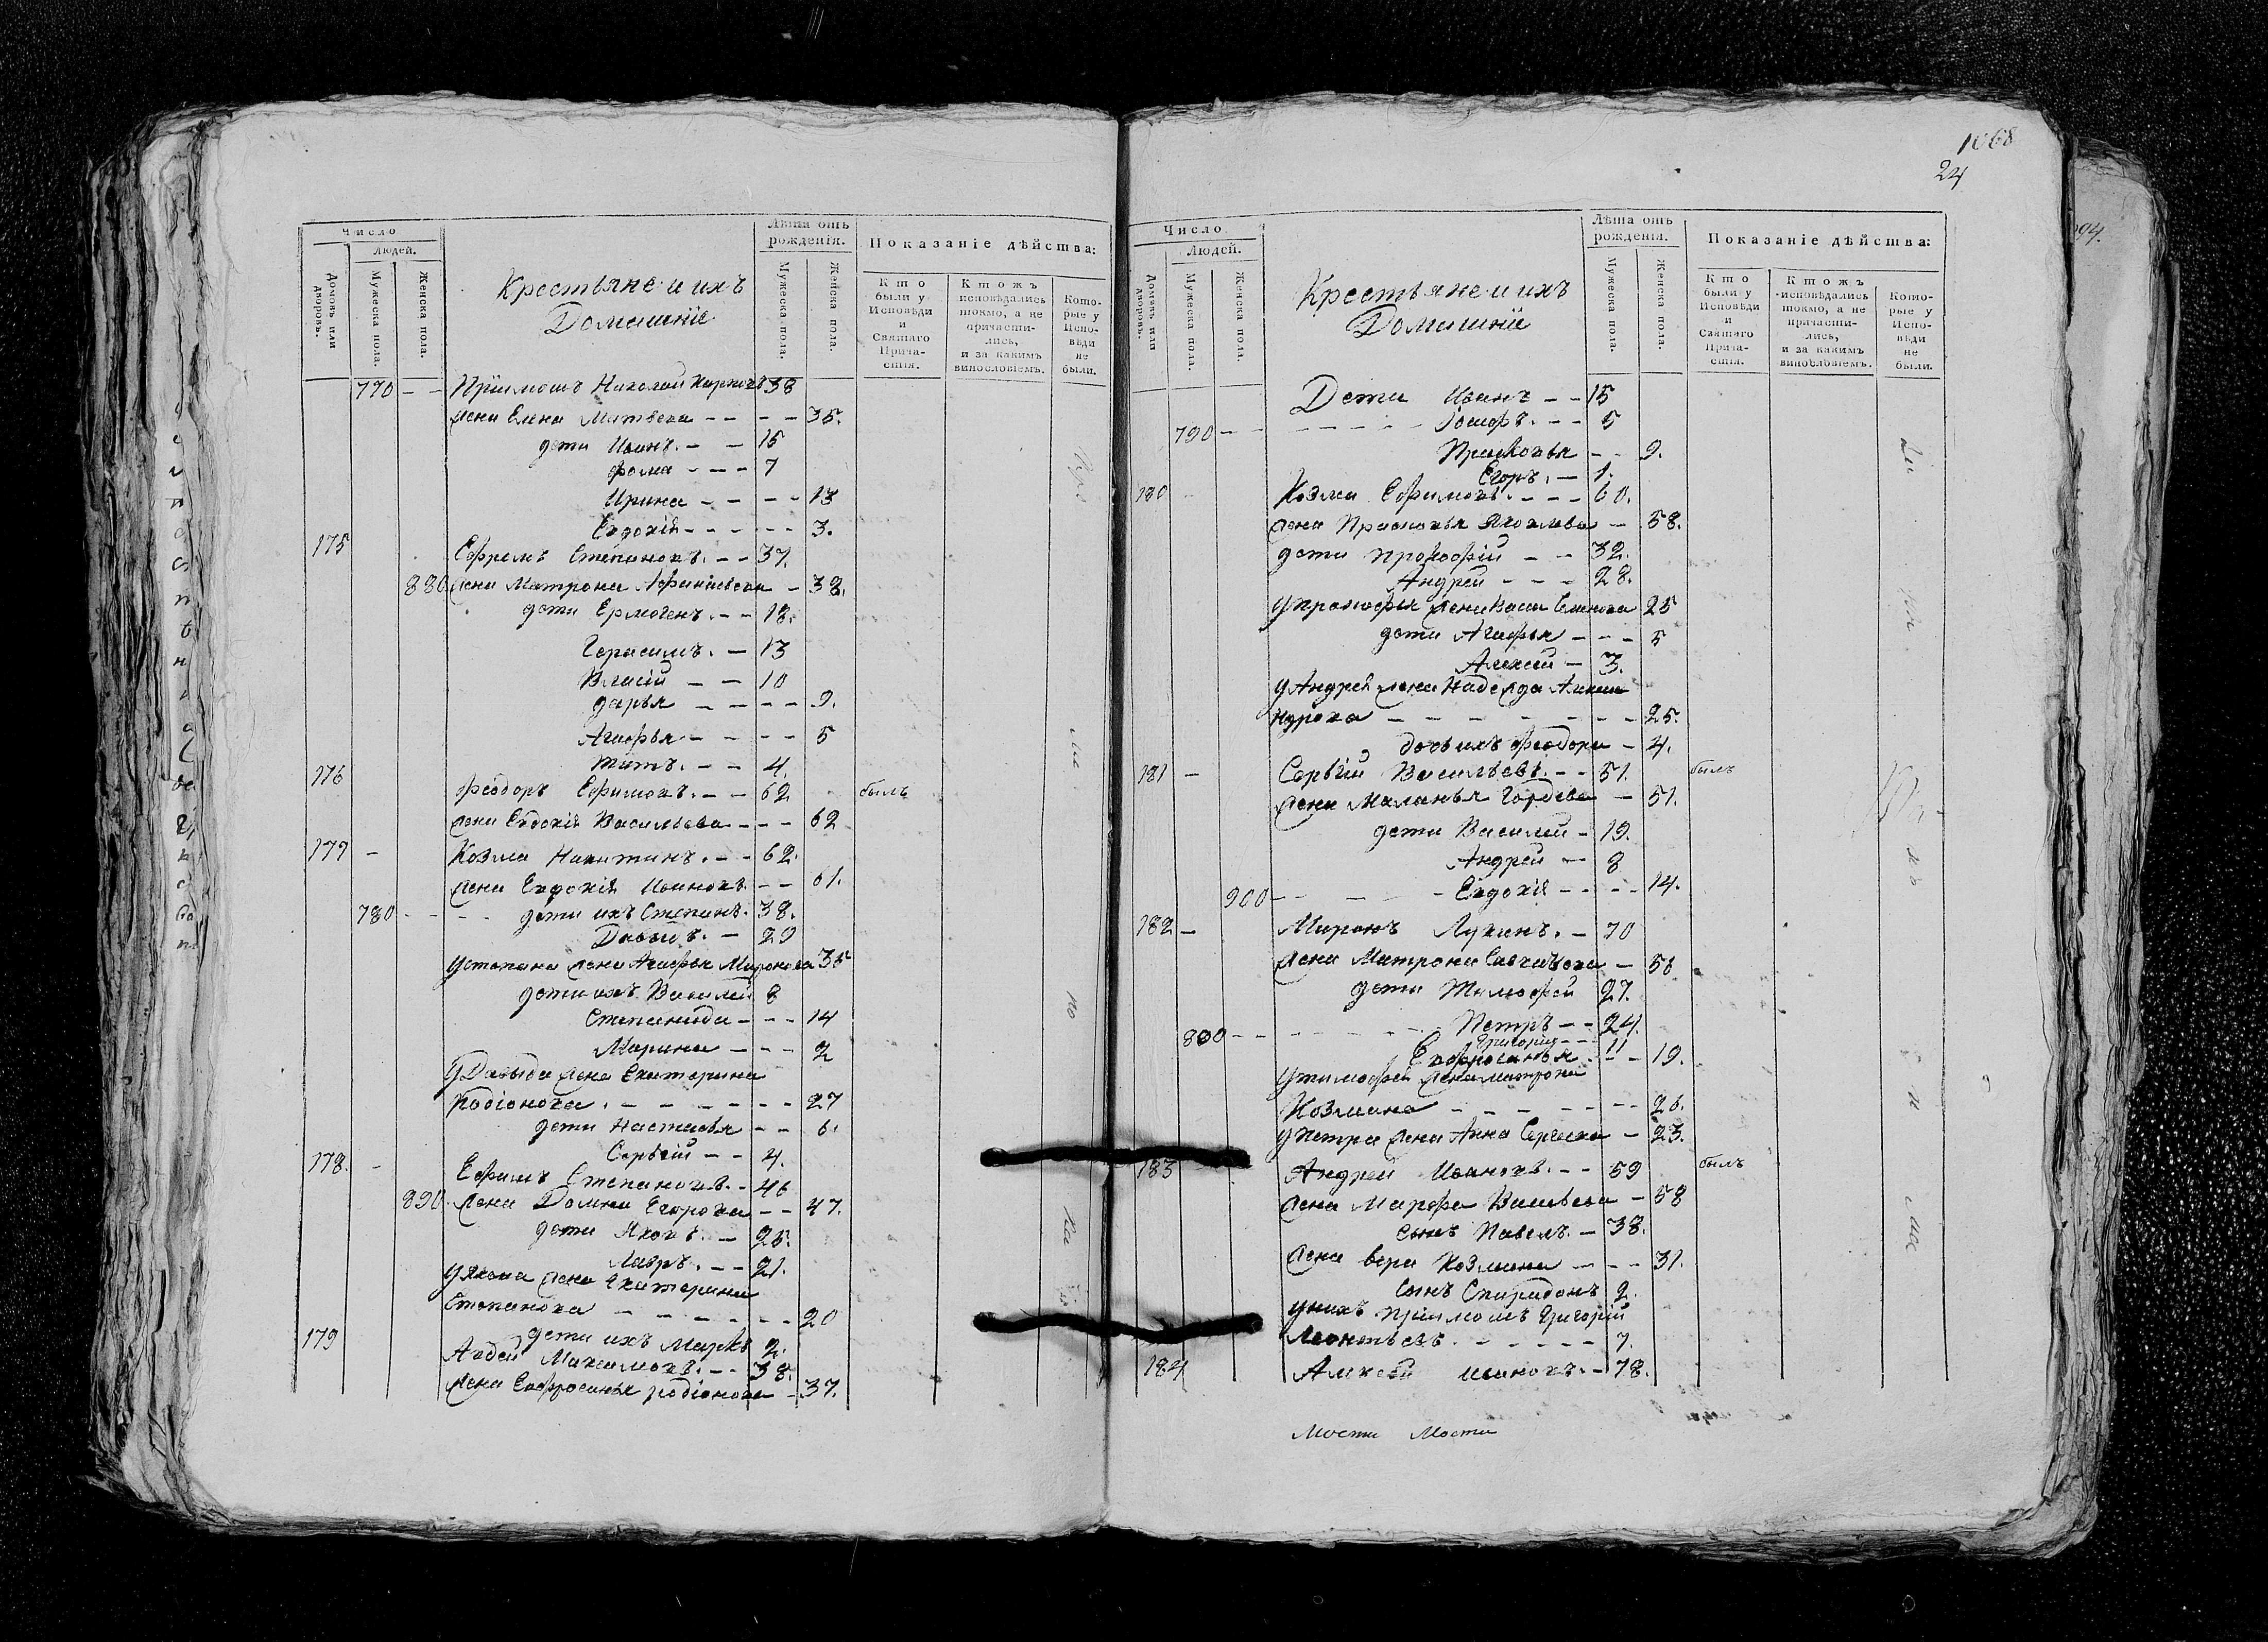 Число
Людей.
Домовъ или дворовъ.
Мужеска пола.
Женска пола.
Крестьяне и ихъ
Домашніе
Лѣта отъ рожденія.
Мужеска пола.
Женска пола.
Показаніе дѣйства:
Кто были у Исповѣди и Святаго Причастія.
Ктожъ исповѣдались токмо, а не причастились, и за какимъ винословіемъ.
Которые у Исповѣди не были.
770 - - Пріимошъ Николай Карповъ 38
жена Елена Матвеева - - - - 35.
дети Иванъ. - - 15
Фома - - - 7
Ирина - - - - 13
Евдокія - - - - - 3.
175 Ефремъ Степановъ. - - 37.
880 жена Матрона Афанасьева - 38.
дети Ермогенъ. - - 18.
Герасимъ. - 13
Власій - - 10
дарья - - - - 9.
Агафья - - - - 5
титъ. - - 4.
176 Феодоръ Ефимовъ. - - 62 былъ
жена Евдокія Васильева - - - 62
177 - Козма Никитинъ. - - 62.
жена Евдокія Иванова - - 61.
780 - - - - дети ихъ Степанъ. 38.
Давыдъ. - 29
устепана жена Агафья Миронова 35
дети ихъ Василей 8
Степанида - - - 14
Марина - - - 2
УДавыда жена Екатерина
Родіонова. - - - - - - 27
дети Настасья - - 6.
Сергій - - 4.
178. - Ефимъ Степановъ. - 46
890 жена Домна Егорова - - 47.
дети Яковъ. - 25.
Лавръ. - - 21.
уякова жена Екатерина
Степанова - - - - - - 20
дети ихъ Марко 2.
179 Авдей Максимовъ. - - 38.
жена Евфросинья родіонова - 37.
1068
24
Число
Людей.
Домовъ или дворовъ.
Мужеска пола.
Женска пола.
Крестьяне и ихъ
Домашніе
Лѣта отъ рожденія.
Мужеска пола.
Женска пола.
Показаніе дѣйства:
Кто были у Исповѣди и Святаго Причастія.
Ктожъ исповѣдались токмо, а не причастились, и за какимъ винословіемъ.
Которые у Исповѣди не были.
Дети Иванъ - - 15
790 - - - - - - - Іосифъ. - - - 5
Прасковья - - 9.
Егоръ. - 1.
180 - Козма Ефимовъ. - - - 60.
жена Прасковья Яковлева - 58.
дети прокофій - - 32.
Андрей - - - 28.
упрокофья жена Васса Семенова 25
дети Агафья - - - 5
Алексей - 3.
уАндрея жена Надежда Алекса
ндрова - - - - - - - 25.
дочь ихъ Феодора - 4.
181 - Сергій Васильевъ. - - 51. былъ
жена Маланья Гордеева - 51.
дети Василей - 19.
Андрей - - 8
900 - - - - Евдокія - - - - 14.
182 - Миронъ Лукинъ. - 70
жена Матрона Савельева - 56
дети Тимофей 27.
800 - - - - - - Петръ - - 24.
Григорій - - 11
Евфросинья - - - 19.
утимофея жена матрона
Козмина - - - - - - 26.
упетра жена Анна Сергеева - 23.
183 Андрей Ивановъ. - - 59 былъ
жена Марфа Васильева - 58
сынъ Павелъ. - 38.
жена вера Козмина - - - 31.
сынъ Спиридонъ 2.
унихъ пріимошъ Григорій
Леонтьевъ - - - - - 7.
184 Алексей ивановъ. - 78.